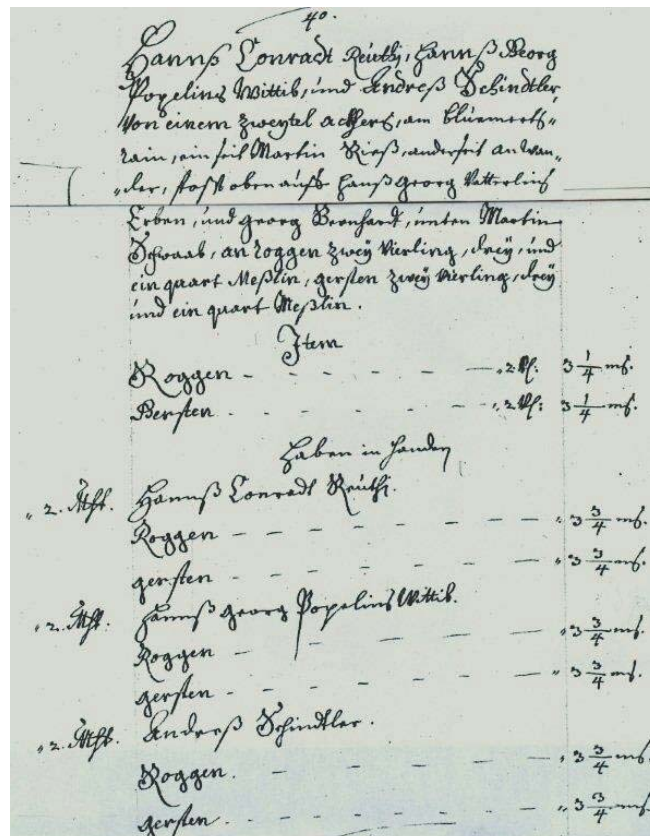 40.
Hannß Conradt Reuthi, Hannß Georg
Popelins Wittib, und Andreß Schindtler
Von einem Zweytel ackhers, am
rain, ein seit Martin Rieß, anderseit anwan-
der, stost oben auff Hanß Georg Vatterlins
Erben, und Georg Bernhardt, unten Martin
Schwaab, an roggen zweÿ Vierling, dreÿ, und
ein quart Meßlin, gersten zweÿ Vierling, dreÿ
und ein quart Meßlin.
Item
Roggen - - - - - - „2. Vl: 3 1/4 ms.
Gersten - - - - - - „2. Vl: 3 1/4 ms.
Haben in Handen
„2. Hannß Conradt Reuthi.
Roggen - - - - - - „3 3/4 ms.
gersten - - - - - - „3 3/4 ms.
„2. Hannß Georg Popelins Wittib.
Roggen - - - - - - „3 3/4 ms.
gersten - - - - - - „3 3/4 ms.
„2. Andreß Schindtler.
Roggen. - - - - - - „3 3/4 ms.
gersten. - - - - - - „3 3/4 ms.